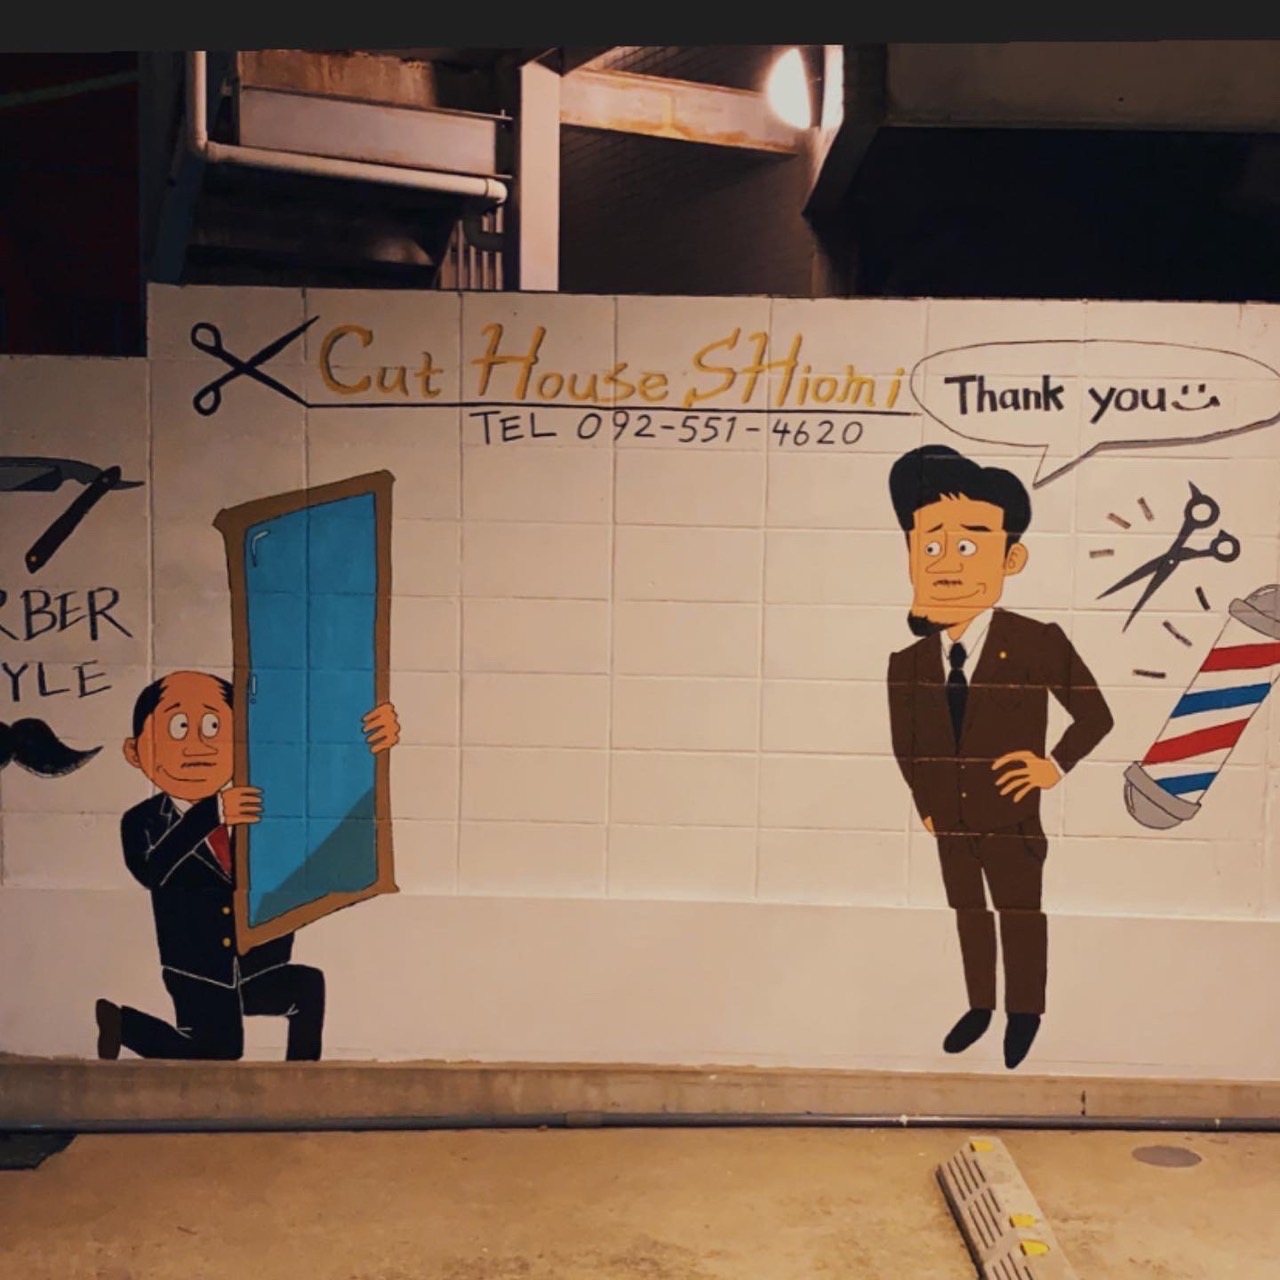 Cut House SHiomi
TEL 092-551-4620
Thank you
RBER
YLE